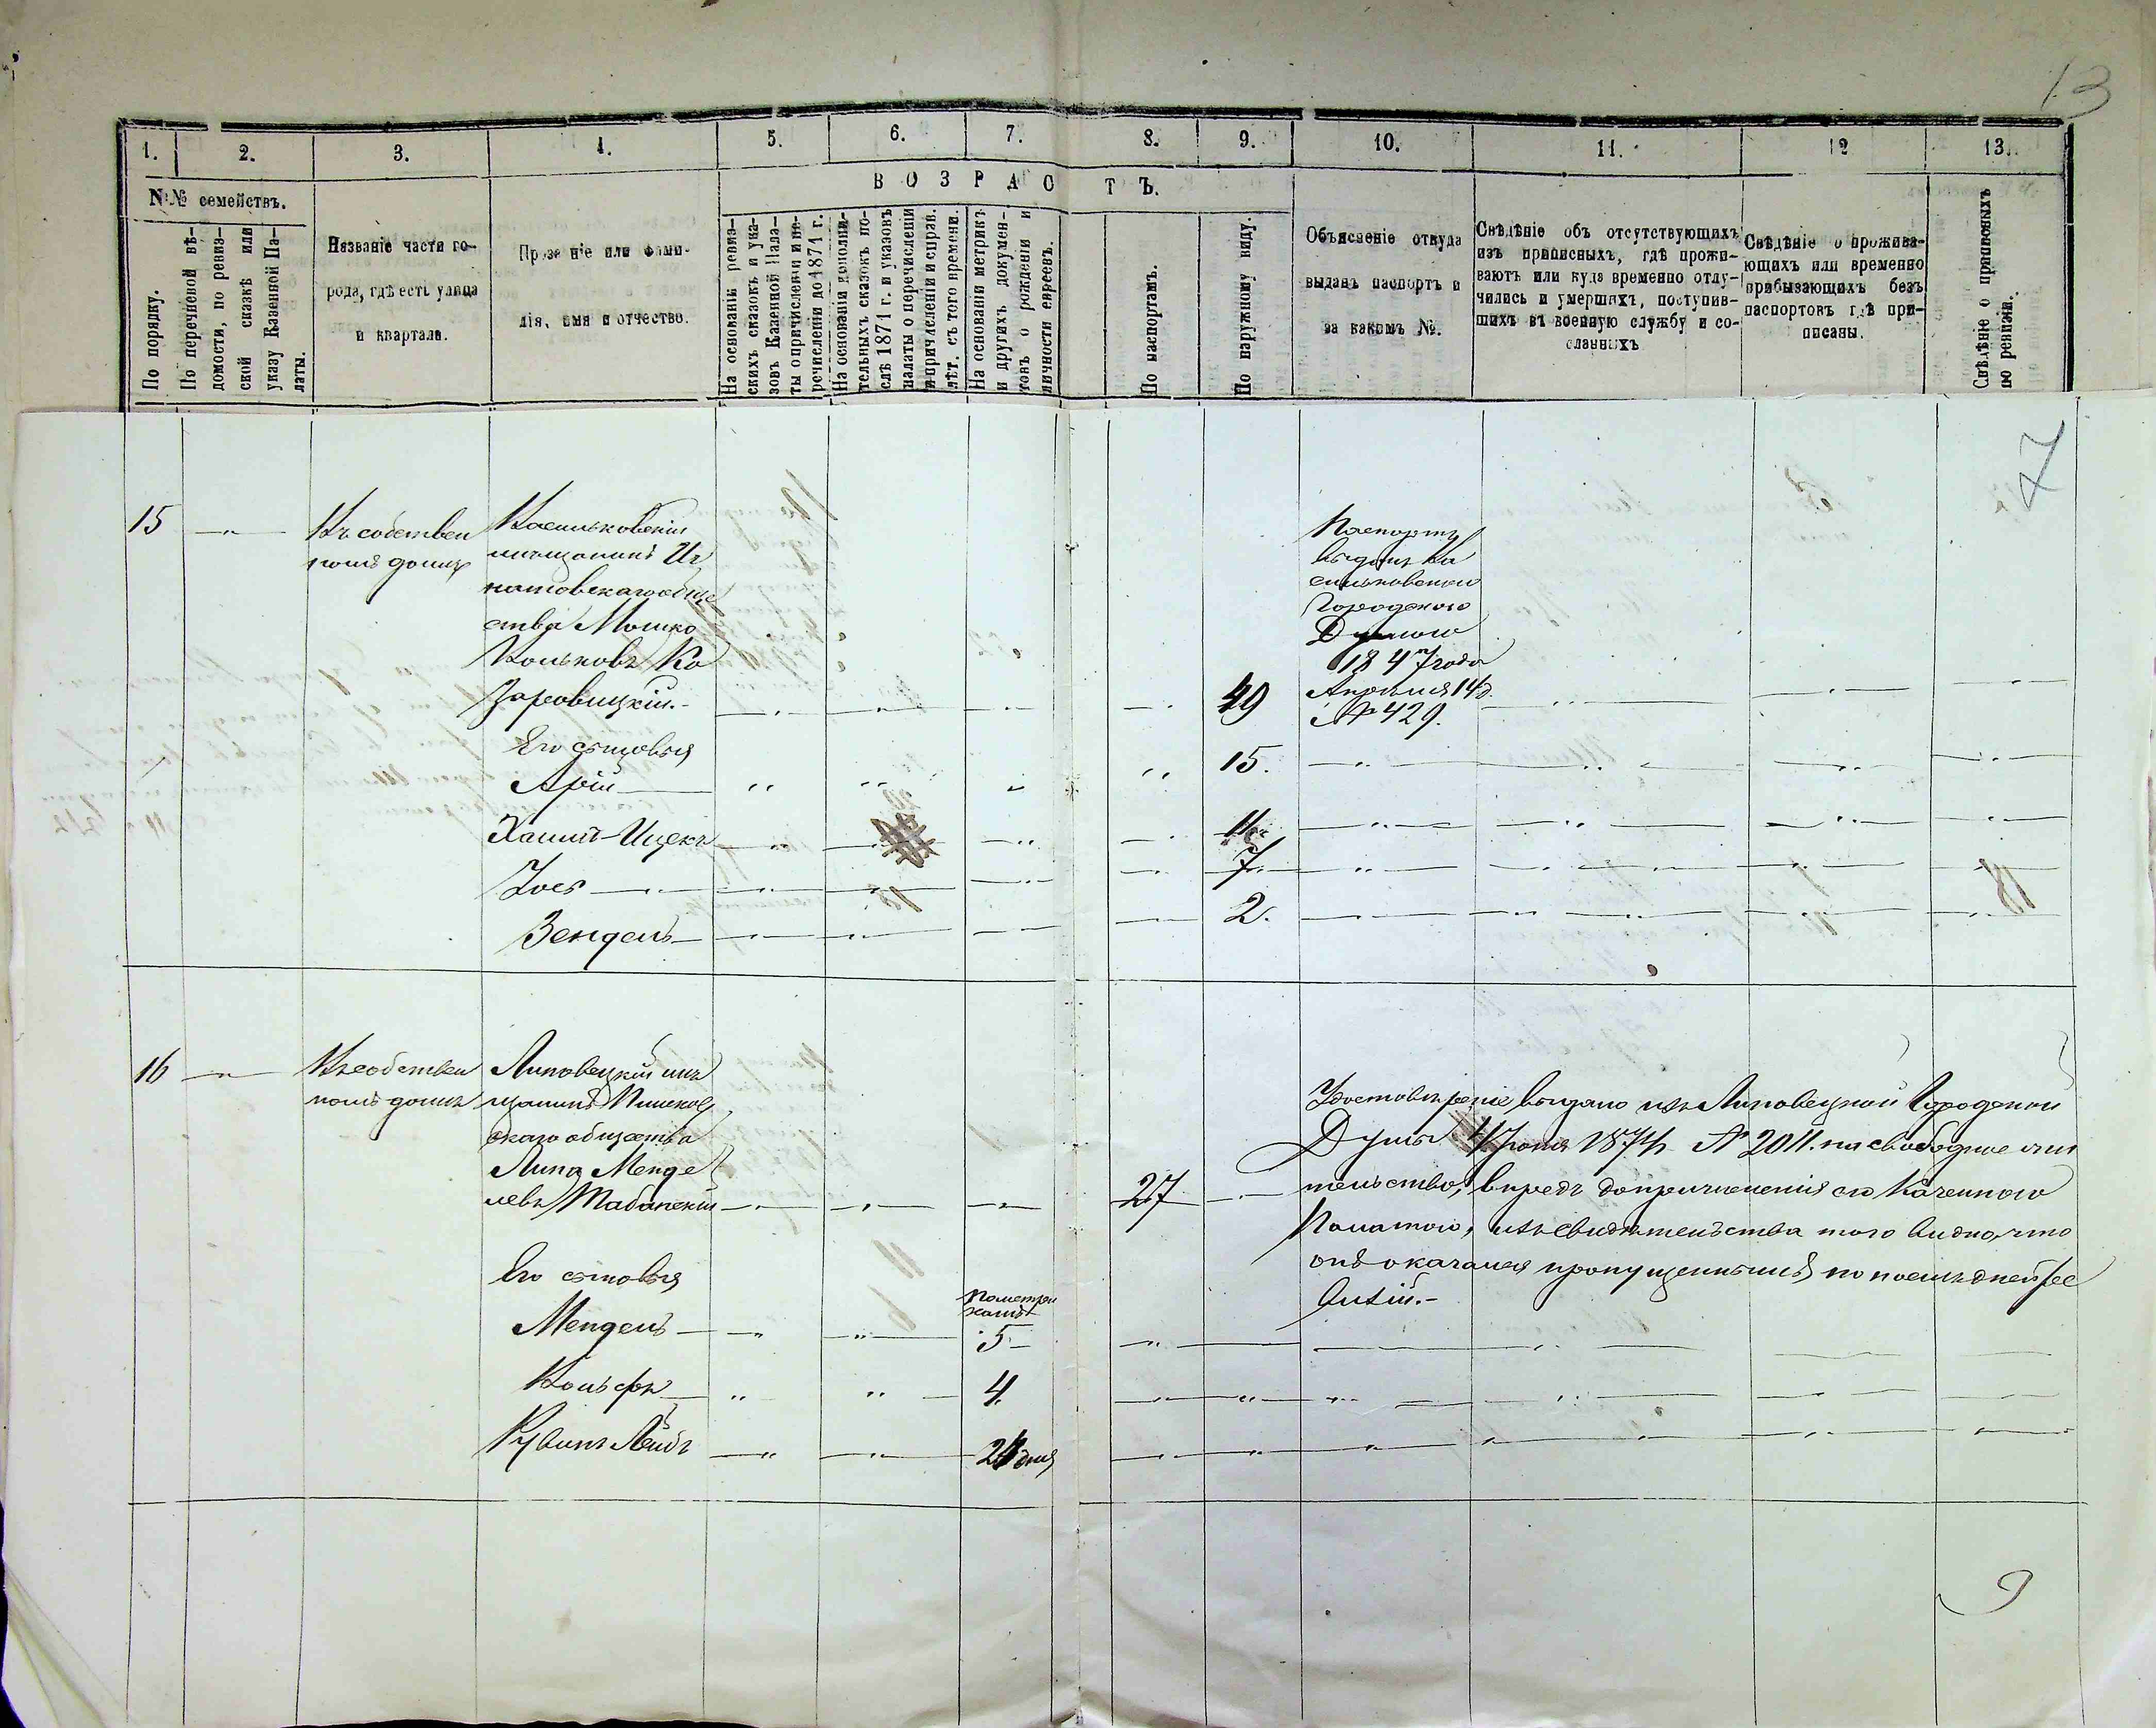 13
1. 2. 3. 4. 5. 6. 7. 8. 9. 10. 11. 12 13.
№№ семействъ.
По порядку.
По перечневой вѣ-
домости, по ревиз-
ской сказкѣ или
указу Казенной Па-
латы.
Названіе части го-
рода, гдѣ есть улица
и квартала.
Прозваніе или фами-
лія, имя и отчество.
ВОЗРАСТЪ.
На основаніи ревиз-
скихъ сказокъ и ука-
зовъ Казенной Пала-
ты о причисленіи и пе-
речисленіи до 1871 г.
На основаніи дополни-
тельныхъ сказокъ по-
слѣ 1871 г. и указовъ
палаты о перечисленіи
и причисленіи и справ.
лѣт. съ того времени.
На основаніи метрикъ
и другихъ докумен-
товъ о рожденіи и
личности евреевъ.
По паспортамъ.
По наружному виду.
Объясненіе откуда
выданъ паспортъ и
за какимъ №.
Свѣдѣніе объ отсутствующихъ
изъ приписныхъ, гдѣ прожи-
ваютъ или куда временно отлу-
чились и умершихъ, поступив-
шихъ въ военную службу и со-
сланныхъ
Свѣдѣніе о прожива-
ющихъ или временно
прибывающихъ безъ
паспортовъ гдѣ при-
писаны.
Свѣдѣніе о приписныхъ
по ревизіи.
7
15
Въ собствен
номъ домѣ
Васильковскій
мѣщанинъ Иг
натовскаго обще
ства Мошко
Вольковъ Ко
заровицкій.
49
Паспортъ
выданъ Ва
сильковскою
Городскою
Думою
1847 года
Апрѣля 14 д.
№ 429.
Его сыновья
Арій 15.
Хаимъ-Ицекъ 11
Зось 7
Зендель 2.
16
Въ собствен
номъ домѣ
Липовецкій мѣ
щанинъ
скаго общества
Липа Менде
левъ Табанскій
27
Удостовѣреніе выдано изъ Липовецкой Городской
Думы 4 Іюня 1874 № 2011. на свободное жи
тельство, впредь до причисленія его Казенною
Палатою, изъ свидѣтельства того видно, что
онъ оказался пропущеннымъ по послѣдней ре
визіи.-
Его сыновья
По метри
камъ
Мендель 5
Вольфъ 4.
Рувинъ Лейбъ 24 дня
9